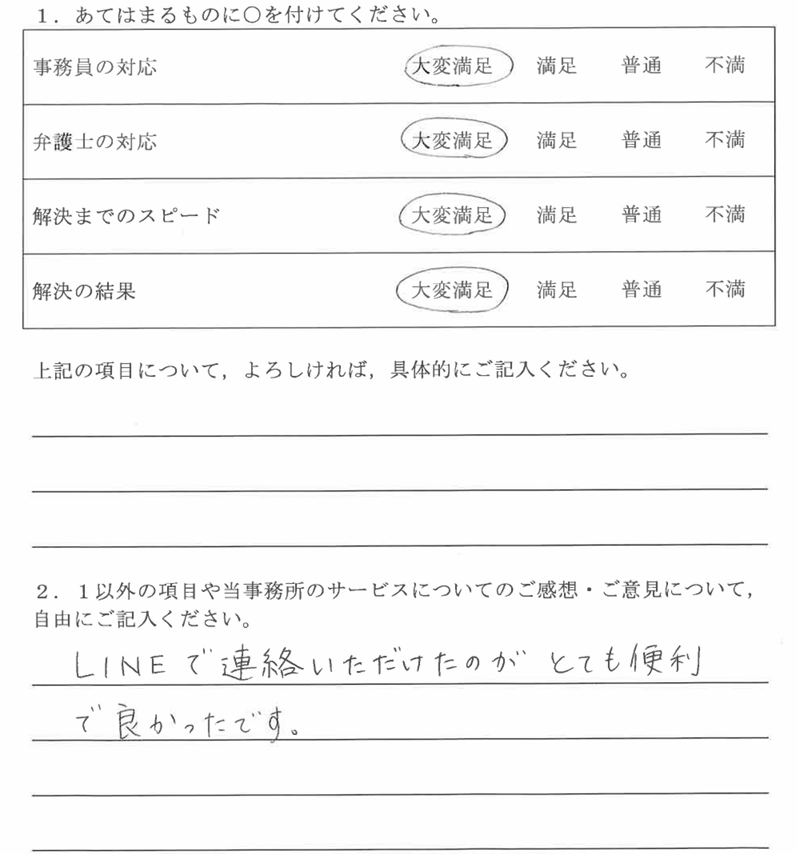 １．あてはまるものに○を付けてください。
事務員の対応 大変満足 満足 普通 不満
弁護士の対応 大変満足 満足 普通 不満
解決までのスピード 大変満足 満足 普通 不満
解決の結果 大変満足 満足 普通 不満
上記の項目について，よろしければ，具体的にご記入ください。
２．１以外の項目や当事務所のサービスについてのご感想・ご意見について，
自由にご記入ください。
LINEで連絡いただけたのが とても便利
で良かったです。